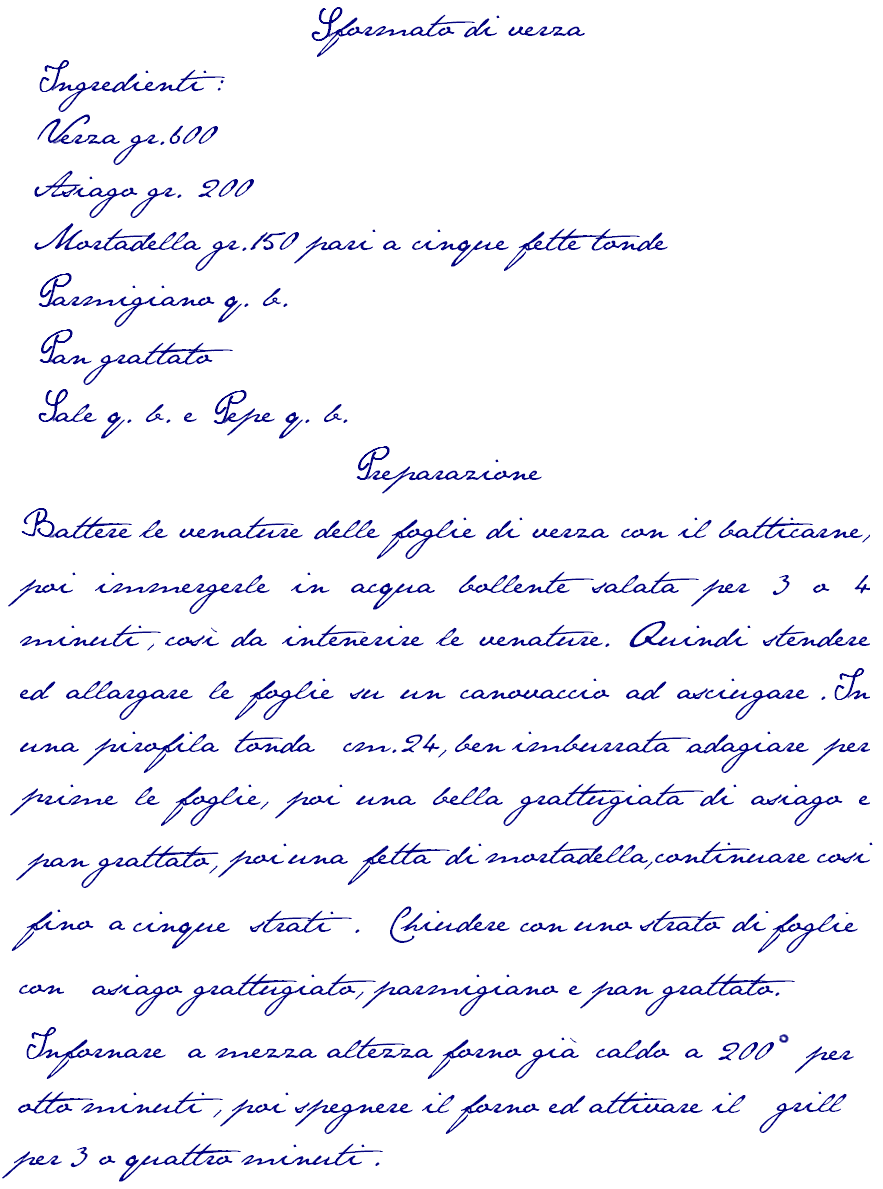 Sformato di verza
Ingredienti :
Verza gr.600
Asiago gr. 200
Mortadella gr.150 pari a cinque fette tonde
Parmigiano q. b.
Pan grattato
Sale q. b. e Pepe q. b.
Preparazione
Battere le venature delle foglie di verza con il batticarne,
poi immergerle in acqua bollente salata per 3 o 4
minuti, così da intenerire le venature. Quindi stendere
ed allargare le foglie su un canovaccio ad asciugare . In
una pirofila tonda cm.24, ben imburrata adagiare per
prime le foglie, poi una bella grattugiata di asiago e
pan grattato, poi una fetta di mortadella,continuare cosi
fino a cinque strati . Chiudere con uno strato di foglie
con asiago grattugiato, parmigiano e pan grattato.
Infornare a mezza altezza forno già caldo a 200° per
otto minuti, poi spegnere il forno ed attivare il grill
per 3 o quattro minuti .